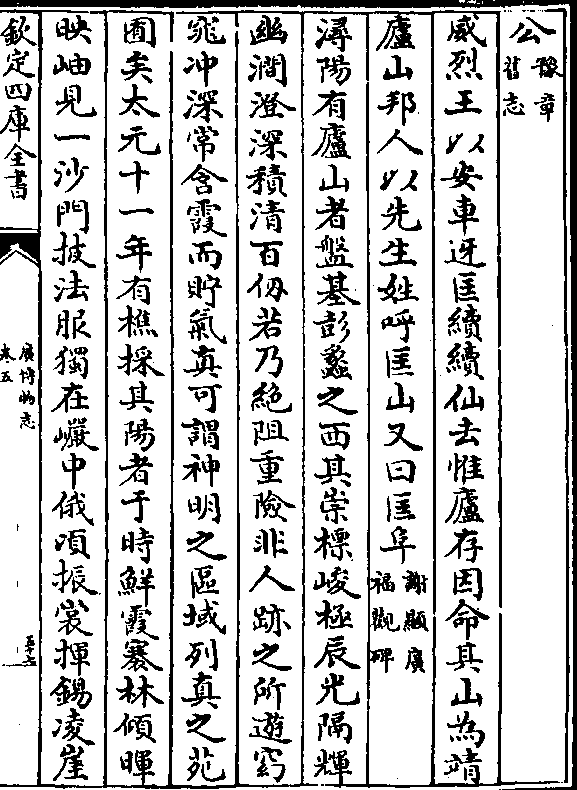 公豫章舊志
威烈王以安車迓匡續續仙去惟廬存因命其山為靖
廬山邦人以先生姓呼匡山又曰匡阜謝顥廣福觀碑
潯陽有廬山者盤基彭蠡之西其崇標峻極辰光隔輝
幽澗澄深積清百仞若乃絶阻重險非人跡之所遊窈
窕冲深常含霞而貯氣真可謂神明之區域列真之苑
囿矣太元十一年有樵採其陽者于時鮮霞褰林傾暉
映岫見一沙門披法服獨在巖中俄頃振裳揮錫凌崖
欽定四庫全書
廣博物志
卷五